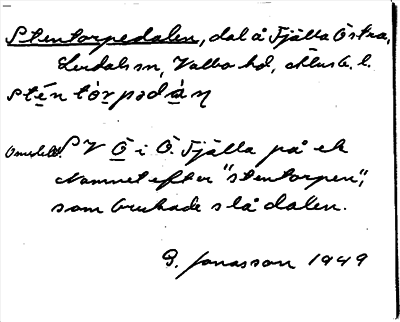 Stentorpedalen, dal å Fjälla Östra,
Lerdals sn, Valbo hd, Älvsb. l.
stèn tòrpədàn
Omedelb. S V Ö i Ö. Fjälla på ek
Namnet efter "stentorpen",
som brukade slå dalen.
G. Jonasson 1949